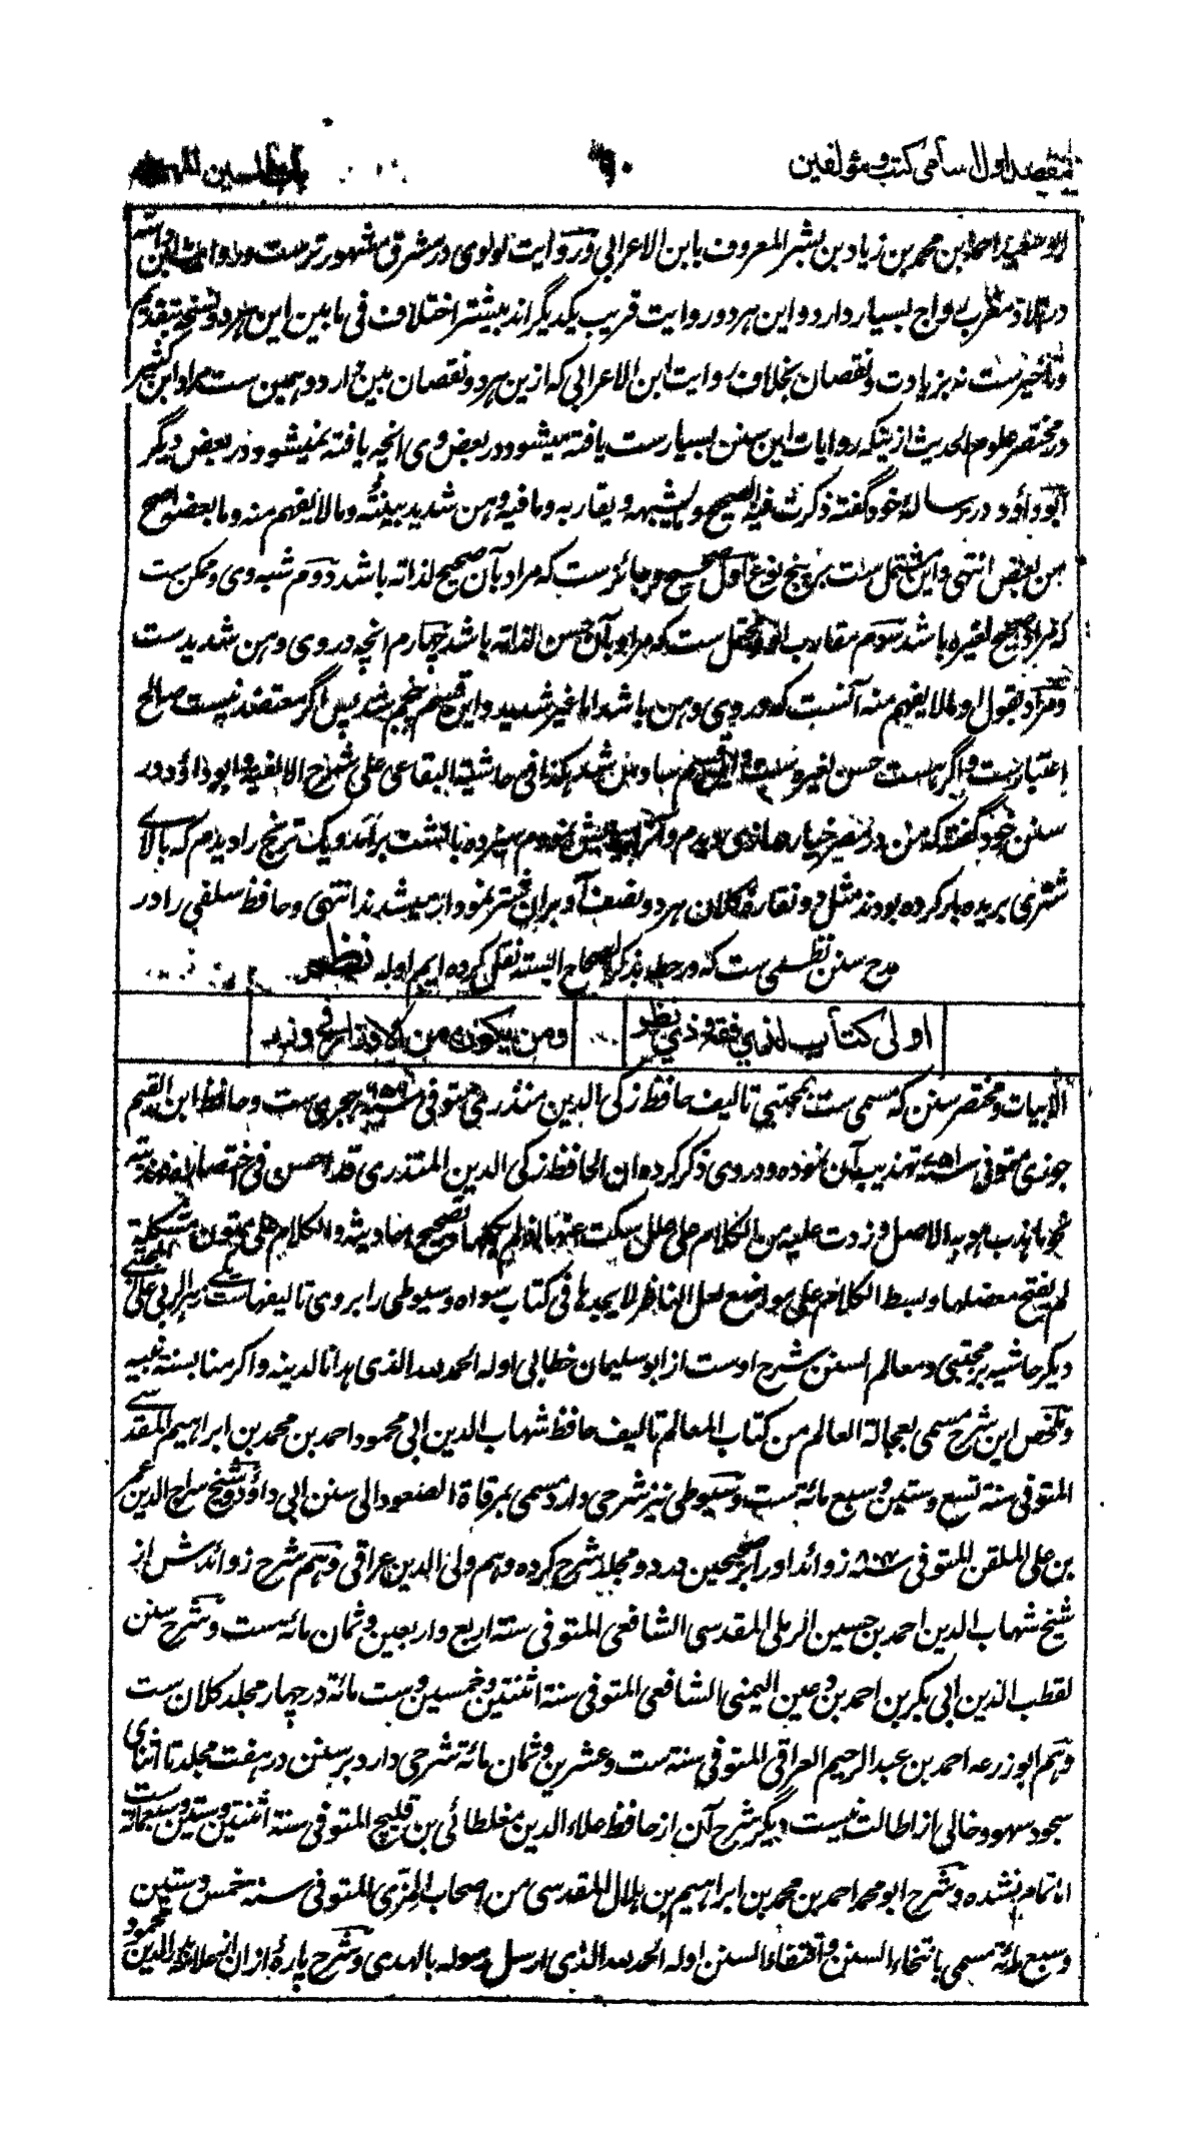 مقصد اول اسامی کتب و مؤلفین
۹۰
باب السین المهملة
ابو سعید احمد بن محمد بن زیاد بن بشر المعروف بابن الاعرابی و روایت لولوی در مشرق مشهور ترست و روایت ابن داسه
در بلاد مغرب رواج بسیار دارد و این هر دو روایت قریب یکدیگر اند بیشتر اختلاف فی ما بین این هر دو نسخه بتقدیم
و تأخیرست نه بزیادت و نقصان بخلاف روایت ابن الاعرابی که ازین هر دو نقصان بین دارد و همین ست مراد ابن کثیر
در مختصر علوم الحدیث ازینکه روایات این سنن بسیارست یافته میشود در بعض وی انچه یافته نمیشود در بعض دیگر
ابو داؤد در رساله خود گفته ذکرت فیه الصحیح و ما یشبهه و یقاربه و ما فیه وهن شدید بینته و ما لا یفهم منه و ما بعضه اصح
من بعض انتهی و این مشتمل ست بر پنج نوع اول صحیح و جائزست که مراد بآن صحیح لذاته باشد دوم شبه وی و ممکن ست
که مراد صحیح لغیره باشد سوم مقارب او و محتمل ست که مراد بآن حسن لذاته باشد چهارم انچه در وی وهن شدیدست
و مراد بقول او ما لا یفهم منه آنست که در وی وهن باشد اما غیر شدید و این قسم پنجم شد پس اگر معتضد نیست صالح
اعتبارست و اگر هست حسن لغیره است و این قسم ششم شد هکذا فی حاشیة البقاعی علی شرح الالفیة و ابو داؤد در
سنن خود گفته که من در مصر خیار دیدم سیزده بالشت برآمد و یک ترنج را دیدم که بالای
شتری بریده بار کرده بودند مثل دو نقاره کلان هر دو نصف او بران شتر نمودار میشدند انتهی و حافظ سلفی را در
مدح سنن نظمی ست که در حطه بذکر الصحاح الستة نقل کرده ایم اوله نظم
اولی کتاب لذی فقه و ذی نظر ومن یکون من الاوزار فی وزر
الابیات و مختصر سنن که مسمی ست بمجتبی تالیف حافظ زکی الدین منذری متوفی سنه ۶۵۶ هجری ست و حافظ ابن القیم
جوزی متوفی سنه ۷۵۱ تهذیب آن نموده و در وی ذکر کرده ان الحافظ زکی الدین المنذری قد احسن فی اختصاره فهذبته
نحو ما هذب هو به الاصل و زدت علیه من الکلام علی علل سکت عنها اذ لم یکملها و تصحیح احادیثه و الکلام علی متون مشکلة
لم یفتح معضلها و بسط الکلام علی مواضع لعل الناظر لا یجدها فی کتاب سواه و سیوطی را بر وی تالیفهاست یکی زهر الربی علی المجتبی
دیگر حاشیه بر مجتبی و معالم السنن شرح اوست از ابو سلیمان خطابی اوله الحمد لله الذی هدانا لدینه و اکرمنا بسنة نبیه
و ملخص این شرح مسمی بعجالة العالم من کتاب المعالم تالیف حافظ شهاب الدین ابی محمود احمد بن محمد بن ابراهیم المقدسی
المتوفی سنة تسع و ستین و سبع مائة ست و سیوطی نیز شرحی دارد مسمی بمرقاة الصعود الی سنن ابی داؤد و شیخ سراج الدین عمر
بن علی الملقن المتوفی سنه ۸۰۴ زوائد او را بر صحیحین در دو مجلد شرح کرده و هم ولی الدین عراقی و هم شرح زوائدش از
شیخ شهاب الدین احمد بن حسین الرملی المقدسی الشافعی المتوفی سنة اربع و اربعین و ثمان مائة ست و شرح سنن
لقطب الدین ابی بکر بن احمد بن دعین الیمنی الشافعی المتوفی سنة اثنتین و خمسین و ست مائة در چهار مجلد کلان ست
و هم ابو زرعه احمد بن عبد الرحیم العراقی المتوفی سنة ست و عشرین و ثمان مائة شرحی دارد بر سنن در هفت مجلد تا اثنای
سجود سهو و خالی از اطالت نیست دیگر شرح آن از حافظ علاء الدین مغلطائی بن قلیج المتوفی سنة اثنتین و ستین و سبعمائة ست
اما تمام نشده و شرح ابو محمد احمد بن محمد بن ابراهیم بن هلال المقدسی من اصحاب المزی المتوفی سنة خمس و ستین
و سبع مائة مسمی بانتحاء السنن و اقتفاء السنن اوله الحمد لله الذی ارسل رسوله بالهدی و شرح پاره ازان از علامه بدر الدین محمود